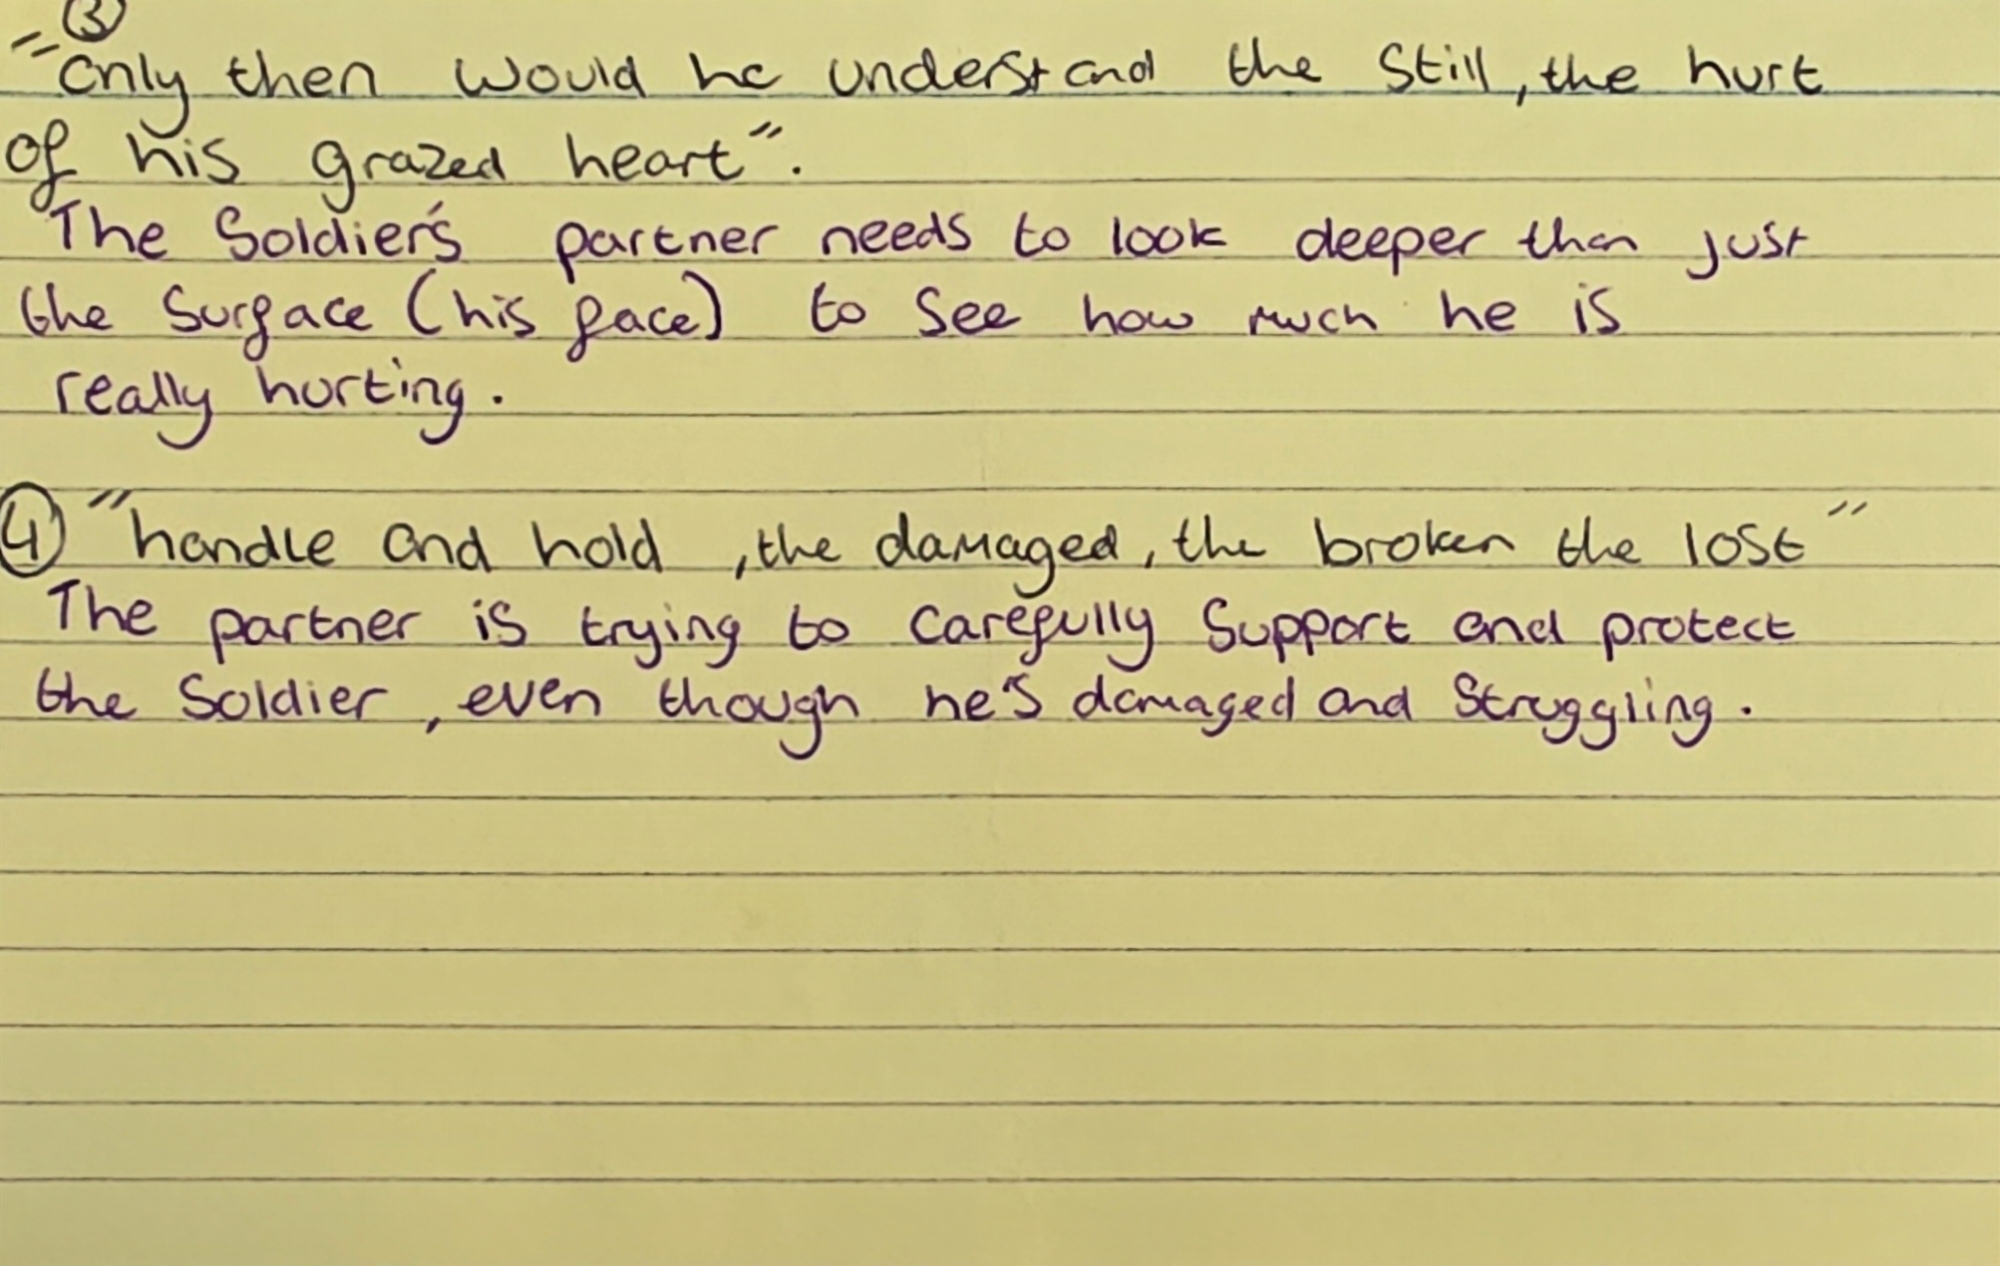 ③
"Only then would he understand the still, the hurt
of his grazed heart".
The Soldier's partner needs to look deeper than just
the surface (his face) to see how much he is
really hurting.
④ "handle and hold, the damaged, the broken the lost"
The partner is trying to carefully support and protect
the Soldier, even though he's damaged and struggling.